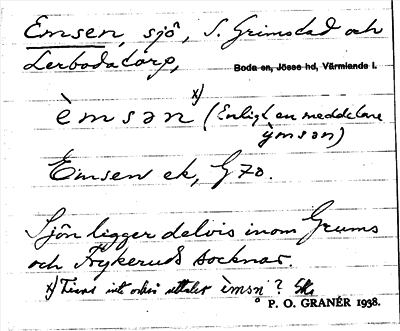 Emsen, sjö, S. Grimstad och
Lerbodatorp,
Boda sn, Jösse hd, Värmlands l.
èmsən x) (Enligt en meddelare
ỳmsən)
Emsen ek, G 70.
Sjön ligger delvis inom Grums
och Frykeruds socknar.
x) Finns inte också uttalet èmsn?
P. O. GRANÉR 1938.